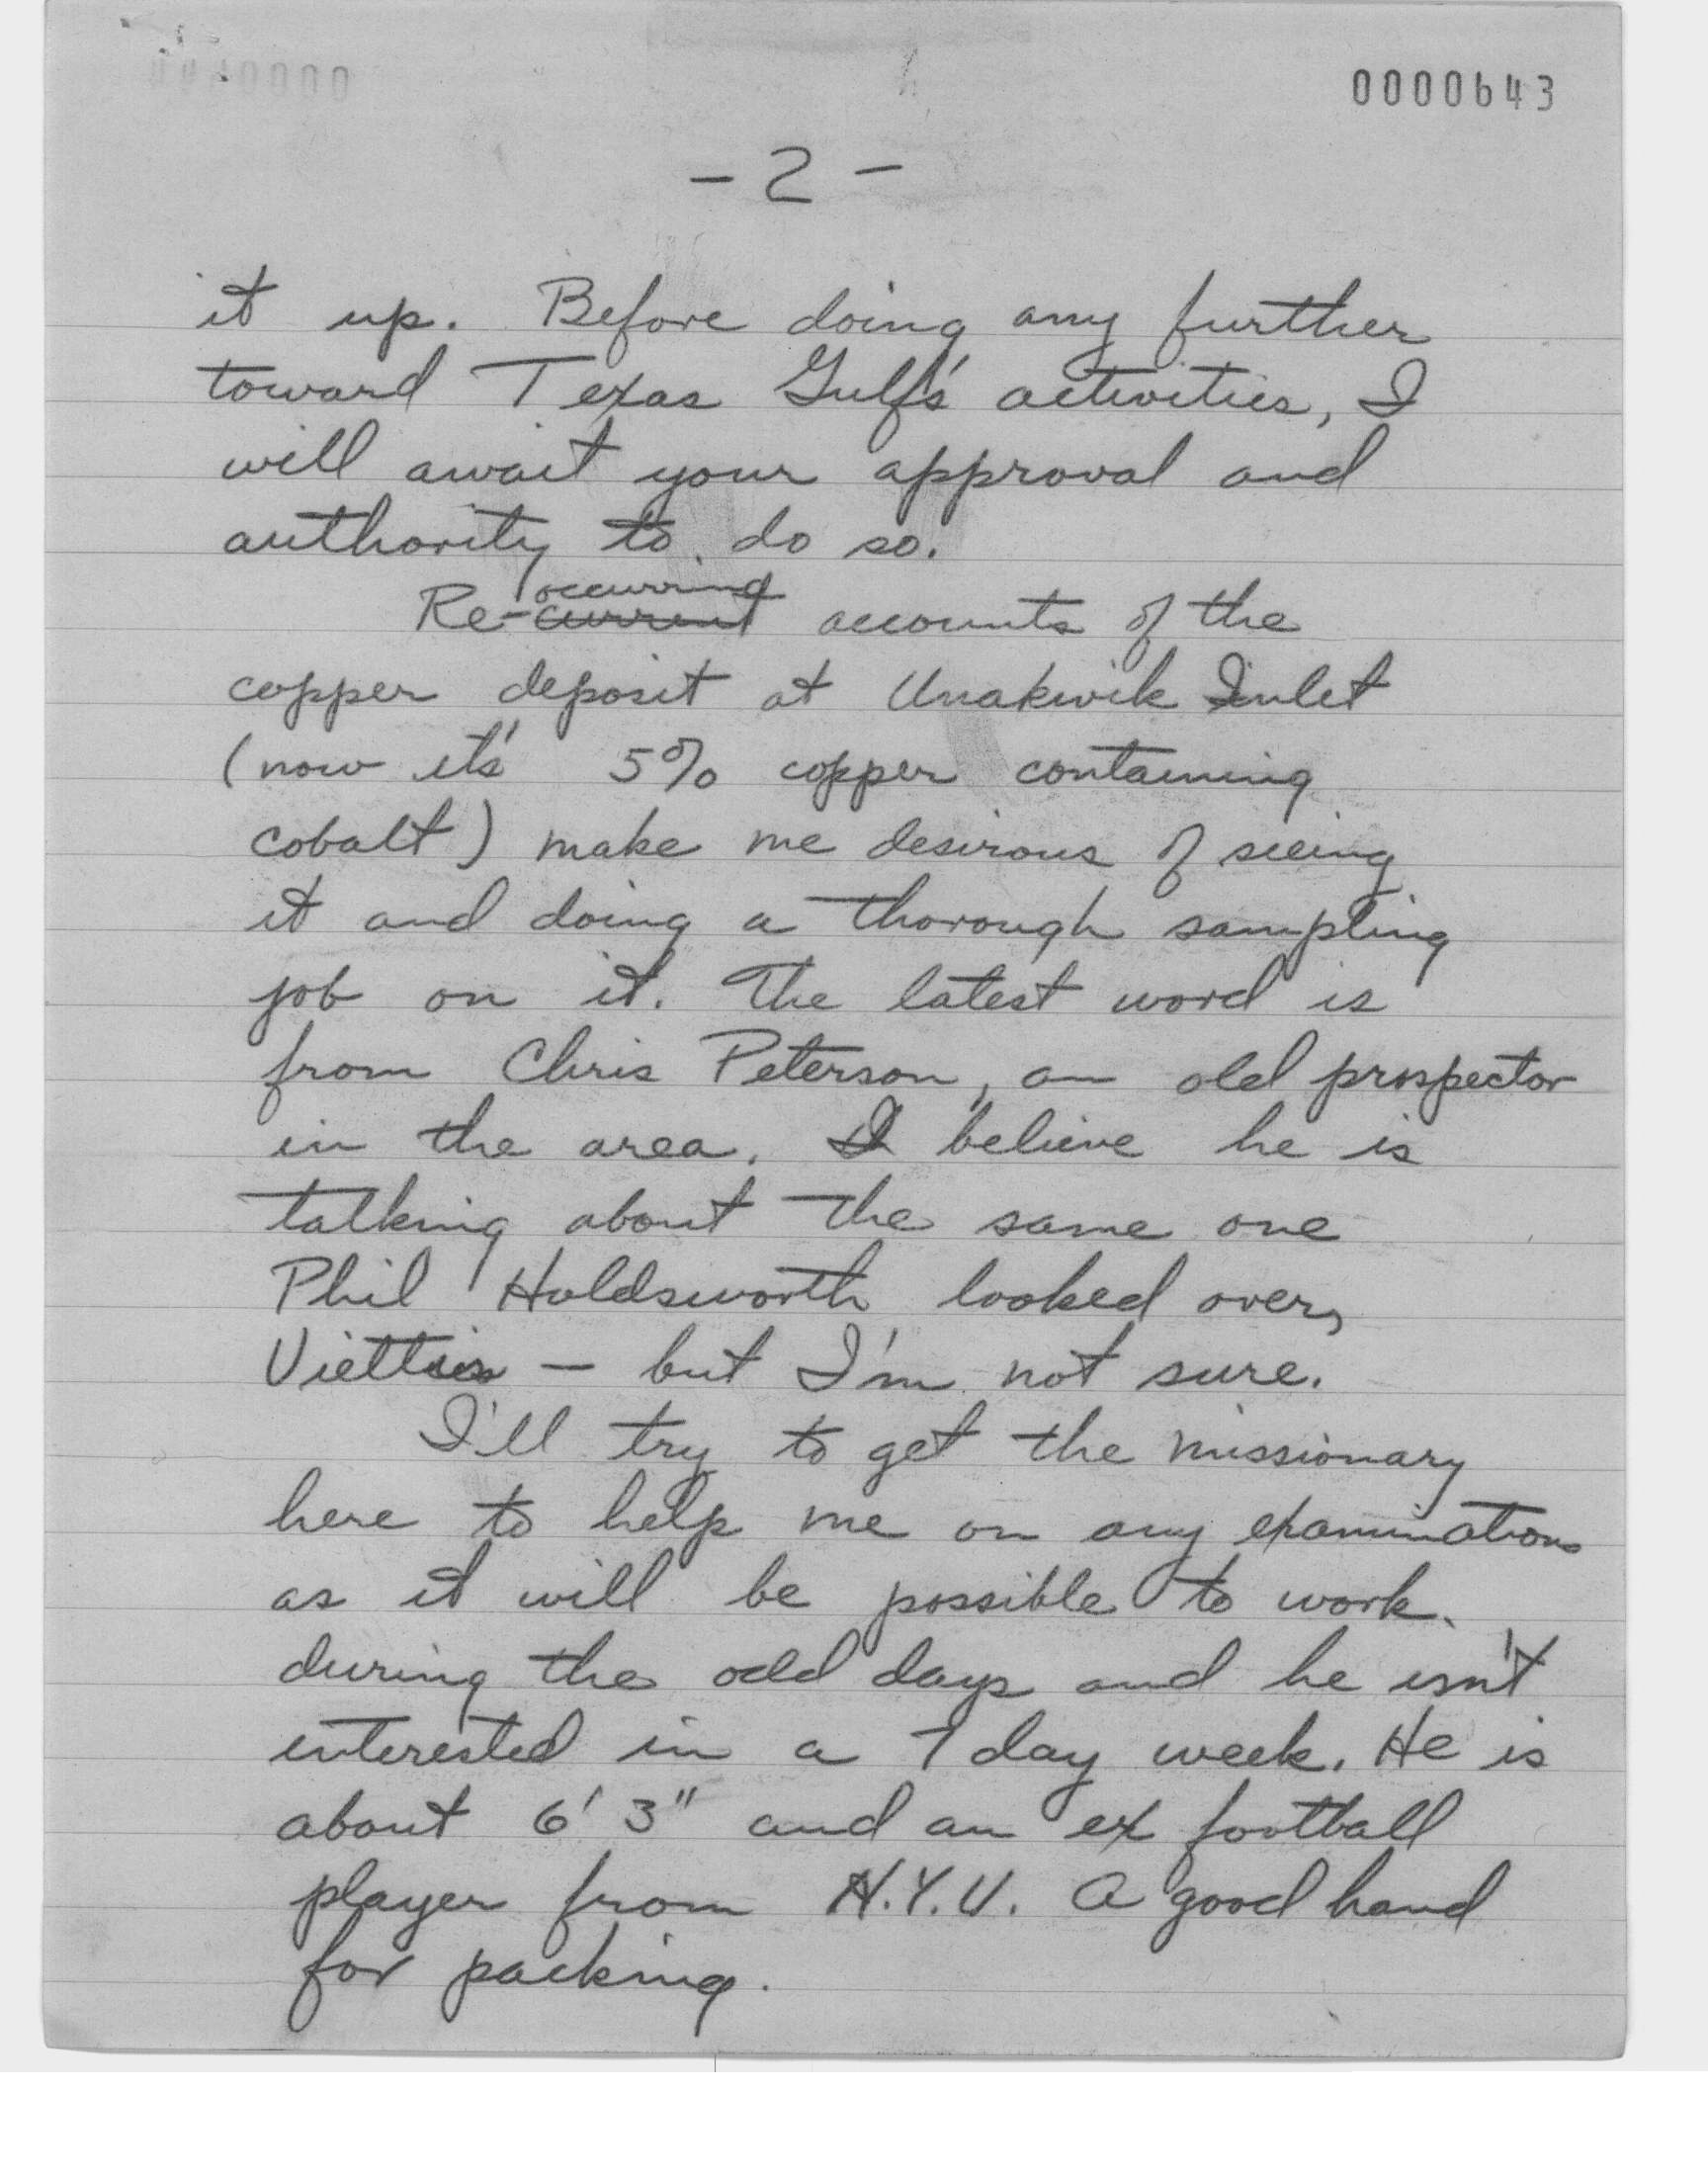 0000643
- 2 -
it up. Before doing any further
toward Texas Gulf's activities, I
will await your approval and
authority to do so.
occurring
Re-current accounts of the
copper deposit at Unakwik Inlet
(now it's 5% copper containing
cobalt) make me desirous of seeing
it and doing a thorough sampling
job on it. The latest word is
from Chris Peterson, an old prospector
in the area. I believe he is
talking about the same one
Phil Holdsworth looked over,
— but I'm not sure.
I'll try to get the missionary
here to help me on any examinations
as it will be possible to work
during the odd days and he isn't
interested in a 7 day week. He is
about 6' 3" and an ex football
player from N.Y.U. A good hand
for packing.